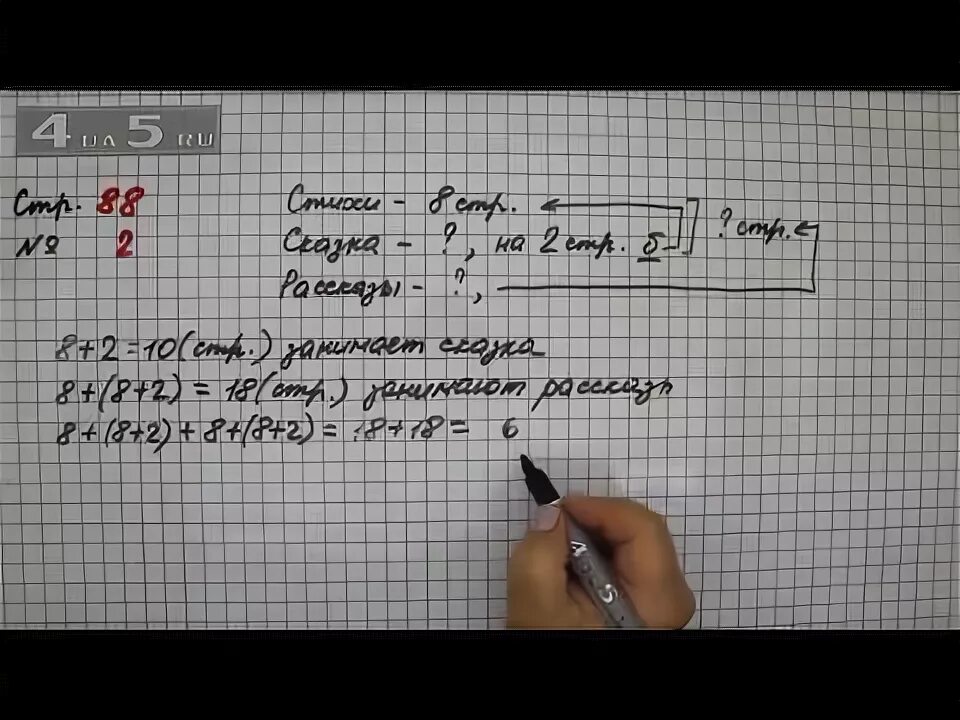 4 НА 5 RU
Стр. 88
№ 2
Стихи - 8 стр.
Сказка - ?, на 2 стр. б
Рассказы - ?,
? стр.
8+2=10(стр.) занимает сказка
8+(8+2) = 18(стр.) занимают рассказы
8+(8+2)+8+(8+2)= 18+18= 6
AB 5